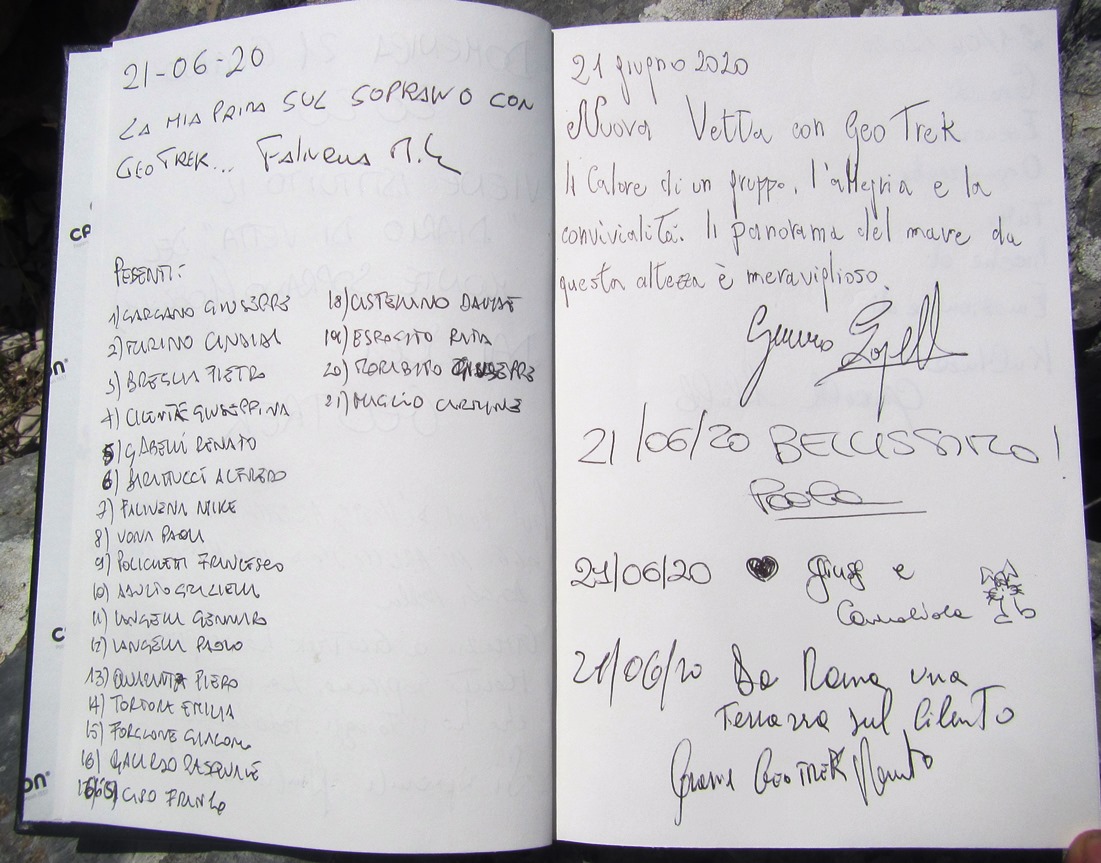 21-06-20
LA MIA PRIMA SUL SOPRANO CON
GEOTREK... FALIVENA M.
PESENTI:
1) GARGANO GIUSEPPE
2) TURINO
3) BRESCIA PIETRO
4) CILENTE GIUSEPPINA
5) GABELLI RENATO
6) ALFREDO
7) FALIVENA MIKE
8) VONA PAOLA
9) POLICHETTI FRANCESCO
10)
11) IANGELLI GENNARO
12) IANGELLI PAOLO
13) QUARANTA PIERO
14) TORTORA EMILIA
15) FORGIONE GIACOMO
16) GALLARDO PASQUALE
CISO FRANCO
18) CISTERNINO DAVIDE
19) ESPOSITO RITA
20) MORABITO GIUSEPPE
21) MUGLIO CARMINE
21 giugno 2020
Nuova Vetta con GeoTrek
Il Calore di un gruppo, l'allegria e la
convivialità. Il panorama del mare da
questa altezza è meraviglioso.
21/06/20 BELLISSIMO!
Paola
21/06/20 ♥ Giusy e
21/06/20 Da Roma una
Terrazza sul Cilento
Grazie GEOTREK Renato